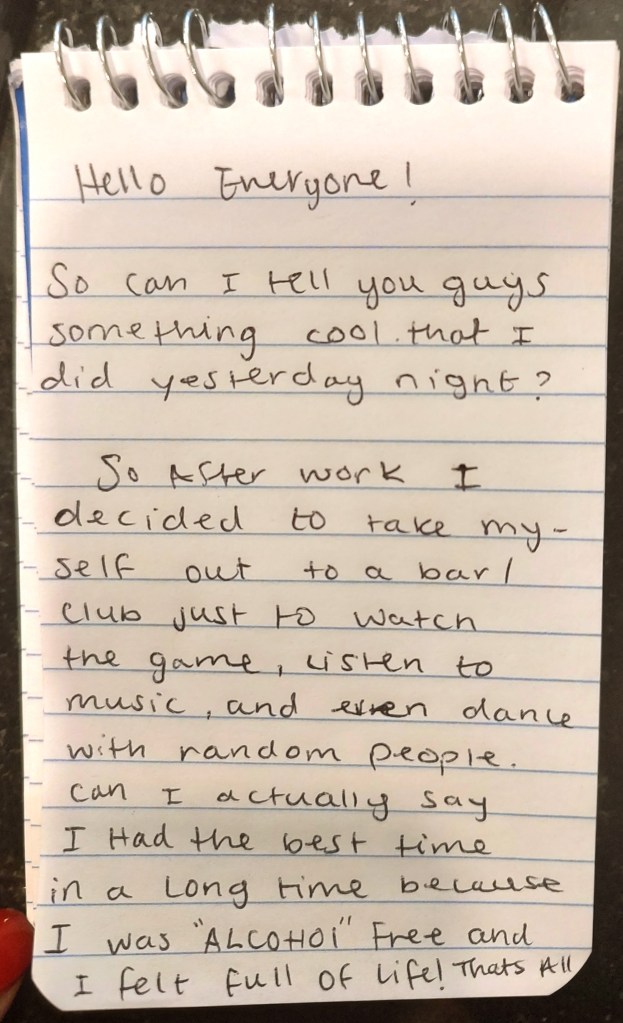 Hello Everyone!
So can I tell you guys
something cool. that I
did yesterday night?
So After work I
decided to take my-
self out to a bar/
club just to watch
the game, Listen to
music, and even dance
with random people.
can I actually say
I Had the best time
in a Long time because
I was "ALCOHOl" Free and
I felt full of Life! Thats All